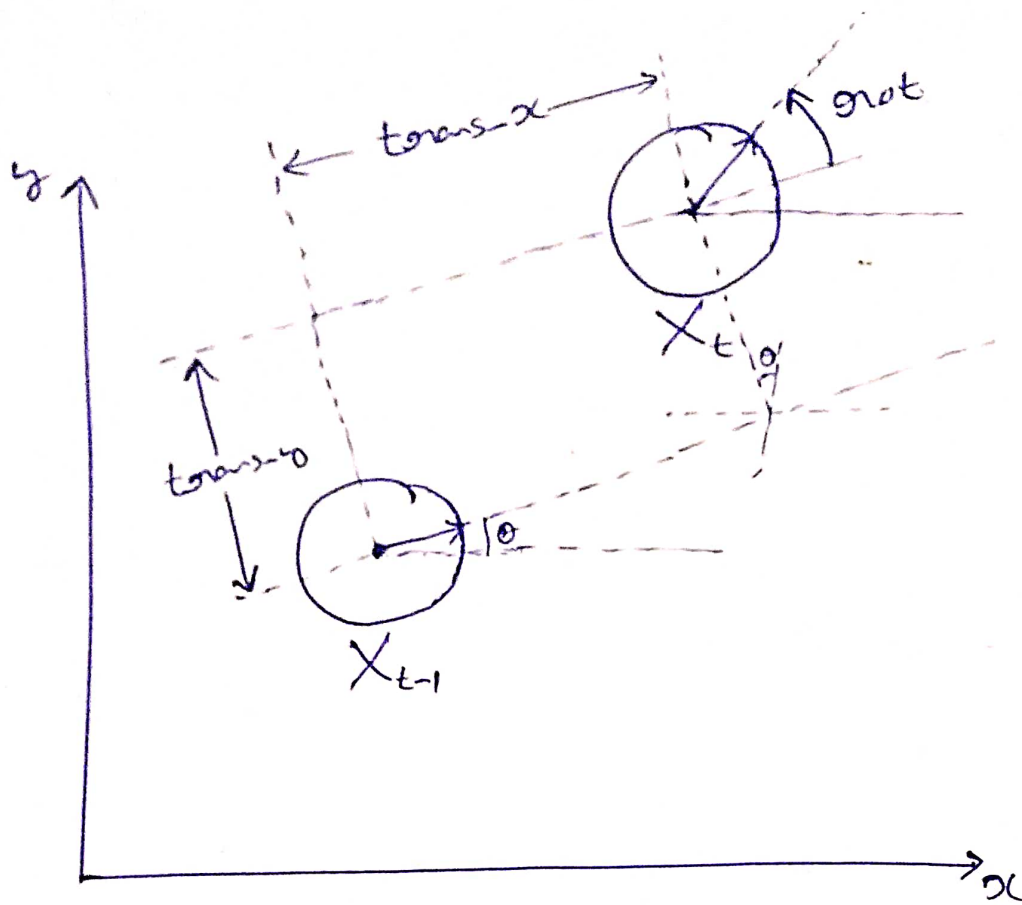 trans-x
rot
y
X t
θ
trans-y
θ
X t-1
x